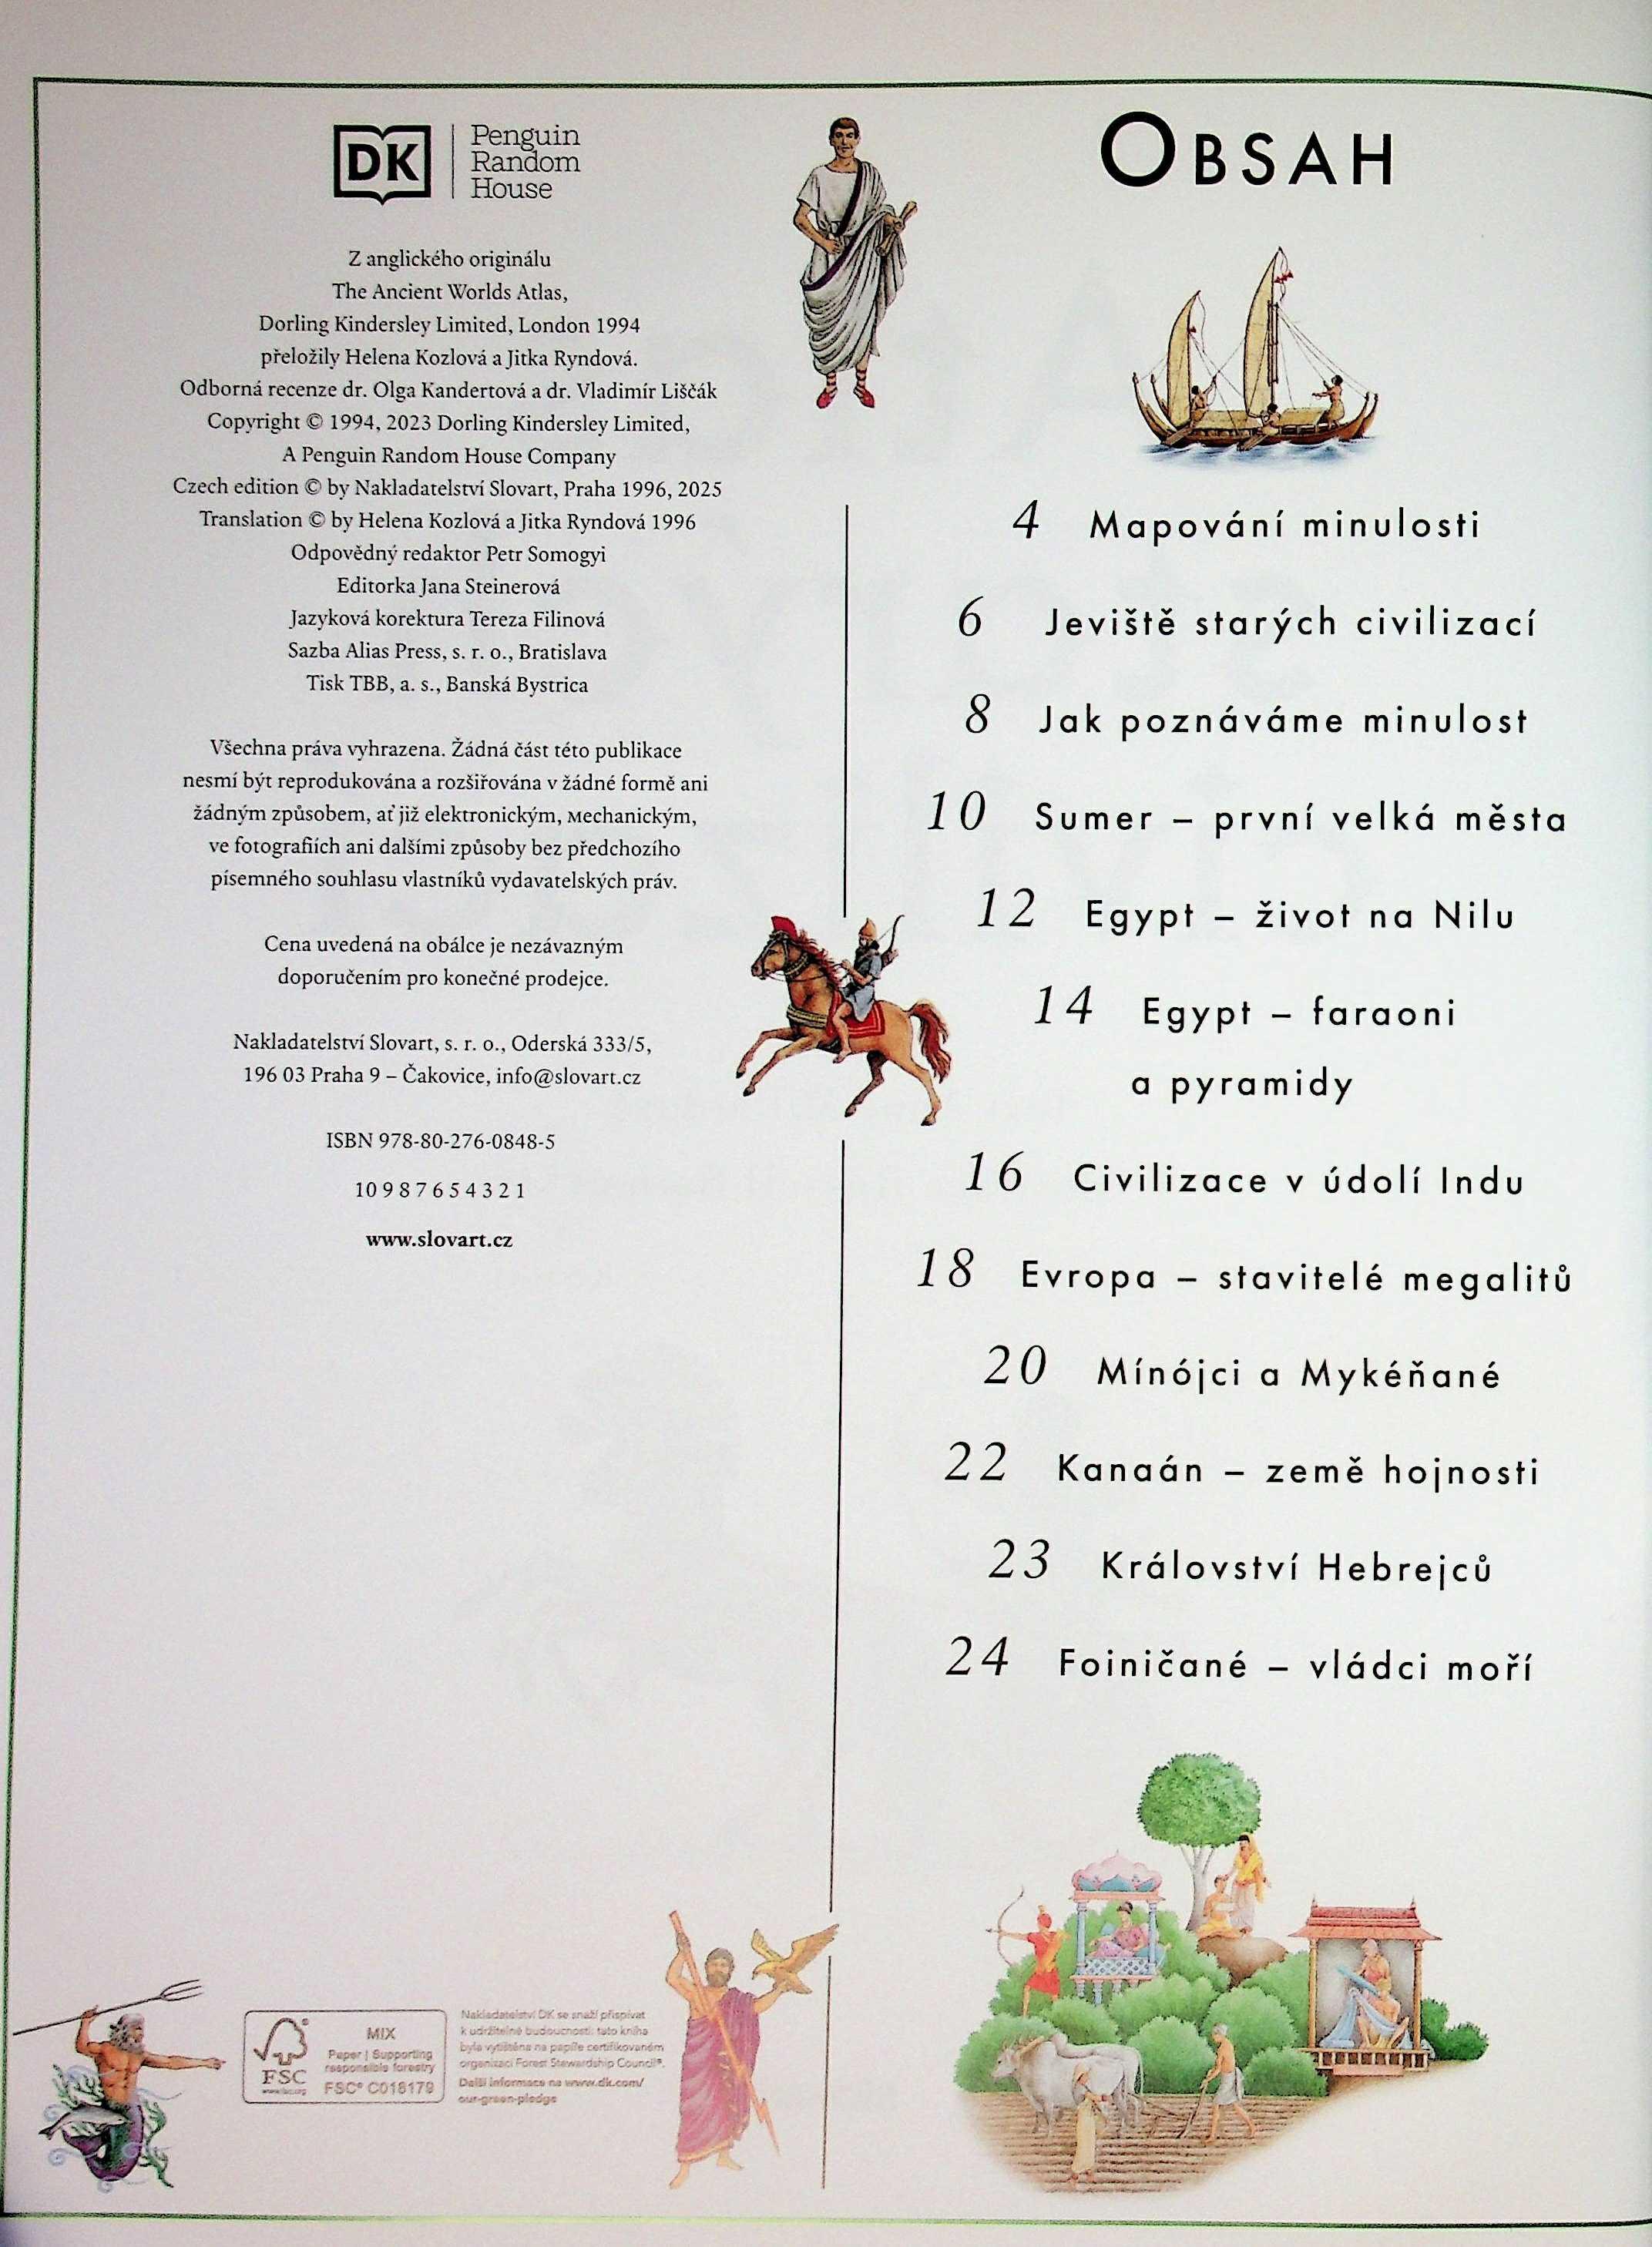 DK
Penguin
Random
House
Z anglického originálu
The Ancient Worlds Atlas,
Dorling Kindersley Limited, London 1994
přeložily Helena Kozlová a Jitka Ryndová.
Odborná recenze dr. Olga Kandertová a dr. Vladimír Liščák
Copyright © 1994, 2023 Dorling Kindersley Limited,
A Penguin Random House Company
Czech edition © by Nakladatelství Slovart, Praha 1996, 2025
Translation © by Helena Kozlová a Jitka Ryndová 1996
Odpovědný redaktor Petr Somogyi
Editorka Jana Steinerová
Jazyková korektura Tereza Filinová
Sazba Alias Press, s. r. o., Bratislava
Tisk TBB, a. s., Banská Bystrica
Všechna práva vyhrazena. Žádná část této publikace
nesmí být reprodukována a rozšiřována v žádné formě ani
žádným způsobem, ať již elektronickým, mechanickým,
ve fotografiích ani dalšími způsoby bez předchozího
písemného souhlasu vlastníků vydavatelských práv.
Cena uvedená na obálce je nezávazným
doporučením pro konečné prodejce.
Nakladatelství Slovart, s. r. o., Oderská 333/5,
196 03 Praha 9 – Čakovice, info@slovart.cz
ISBN 978-80-276-0848-5
10 9 8 7 6 5 4 3 2 1
www.slovart.cz
FSC
www.fsc.org
MIX
Paper | Supporting
responsible forestry
FSC® C018179
Nakladatelství DK se snaží přispívat
k udržitelné budoucnosti: tato kniha
byla vytištěna na papíře certifikovaném
organizací Forest Stewardship Council®.
Další informace na www.dk.com/
our-green-pledge
OBSAH
4 Mapování minulosti
6 Jeviště starých civilizací
8 Jak poznáváme minulost
10 Sumer – první velká města
12 Egypt – život na Nilu
14 Egypt – faraoni
a pyramidy
16 Civilizace v údolí Indu
18 Evropa – stavitelé megalitů
20 Mínójci a Mykéňané
22 Kanaán – země hojnosti
23 Království Hebrejců
24 Foiničané – vládci moří